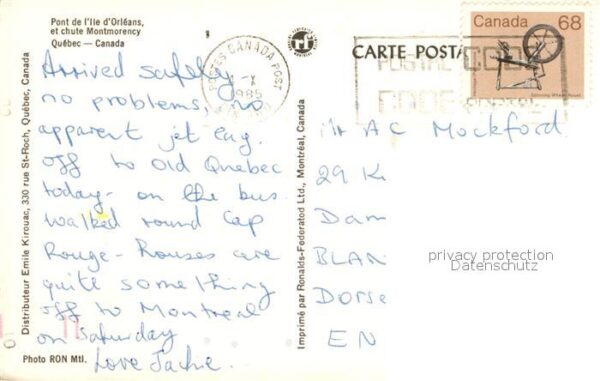 Pont de l'Ile d'Orléans,
et chute Montmorency
Québec — Canada
Arrived safely -
no problems, no
apparent jet lag.
off to Old Quebec
today - on the bus.
walked round Cap
Rouge - houses are
quite something
off to Montreal
on Saturday
Love Jackie.
Photo RON Mtl.
Distributeur Emile Kirouac, 330 rue St-Roch, Québec, Canada
Imprimé par Ronalds-Federated Ltd., Montréal, Canada
POSTES CANADA POST
X
1985
CARTE POSTA
POSTAL CODE
CODE POSTAL
Canada 68
Spinning Wheel, Rouet
Mr A C Mockford
29 K
Dam
BLAN
Dorse
EN
privacy protection
Datenschutz